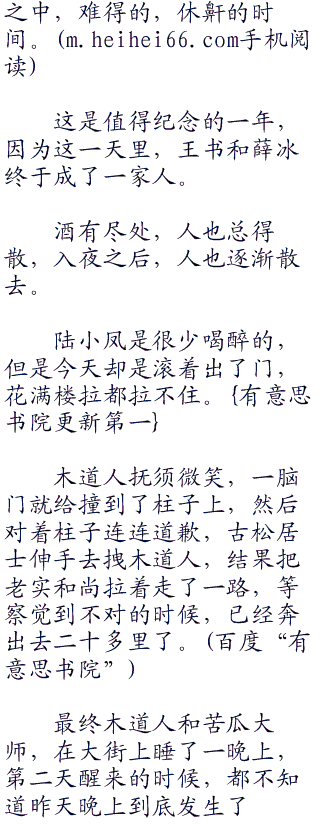 之中，难得的，休鼾的时
间。(m.heihei66.com手机阅
读)
这是值得纪念的一年，
因为这一天里，王书和薛冰
终于成了一家人。
酒有尽处，人也总得
散，入夜之后，人也逐渐散
去。
陆小凤是很少喝醉的，
但是今天却是滚着出了门，
花满楼拉都拉不住。{有意思
书院更新第一}
木道人抚须微笑，一脑
门就给撞到了柱子上，然后
对着柱子连连道歉，古松居
士伸手去拽木道人，结果把
老实和尚拉着走了一路，等
察觉到不对的时候，已经奔
出去二十多里了。(百度“有
意思书院”)
最终木道人和苦瓜大
师，在大街上睡了一晚上，
第二天醒来的时候，都不知
道昨天晚上到底发生了